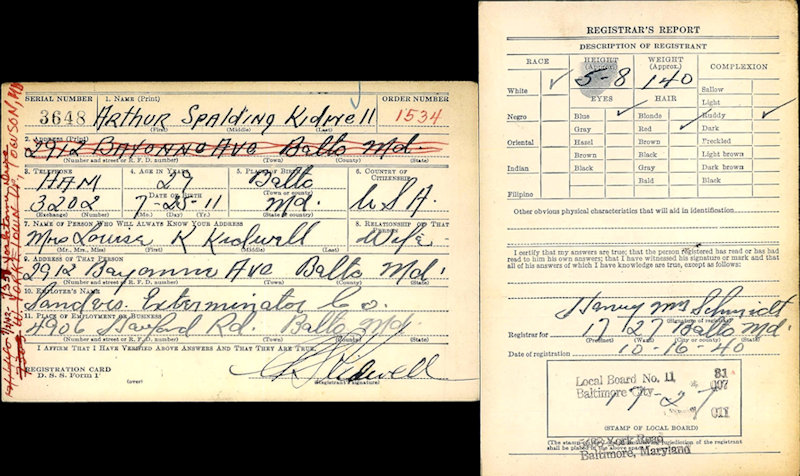 SERIAL NUMBER
1. NAME (Print)
ORDER NUMBER
3648
ARTHUR SPALDING KIDWELL
1534
(First) (Middle) (Last)
2. ADDRESS (Print)
2912 BAYONNE AVE BALTO Md.
(Number and street or R. F. D. number) (Town) (County) (State)
3. TELEPHONE
4. AGE IN YEARS
5. PLACE OF BIRTH
6. COUNTRY OF CITIZENSHIP
HAM
29
Balto
(Town or county)
DATE OF BIRTH
U S A.
3202
7-25-11
Md.
(Exchange) (Number)
(Mo.) (Day) (Yr.)
(State or country)
7. NAME OF PERSON WHO WILL ALWAYS KNOW YOUR ADDRESS
8. RELATIONSHIP OF THAT PERSON
Mrs Louise K Kidwell
Wife
(Mr., Mrs., Miss) (First) (Middle) (Last)
9. ADDRESS OF THAT PERSON
2912 Bayonne Ave Balto Md.
(Number and street or R. F. D. number) (Town) (County) (State)
10. EMPLOYER'S NAME
Sanders Exterminator Co.
11. PLACE OF EMPLOYMENT OR BUSINESS
4906 Harford Rd. Balto Md.
(Number and street or R. F. D. number) (Town) (County) (State)
I AFFIRM THAT I HAVE VERIFIED ABOVE ANSWERS AND THAT THEY ARE TRUE.
REGISTRATION CARD
D. S. S. Form 1
(over)
Kidwell
(Registrant's signature)
TOWSON, MD
REGISTRAR'S REPORT
DESCRIPTION OF REGISTRANT
RACE
HEIGHT (Approx.)
WEIGHT (Approx.)
COMPLEXION
5-8
140
White
Sallow
EYES
HAIR
Light
Negro
Blue
Blonde
Ruddy
Gray
Red
Dark
Oriental
Hazel
Brown
Freckled
Brown
Black
Light brown
Indian
Black
Gray
Dark brown
Bald
Black
Filipino
Other obvious physical characteristics that will aid in identification
I certify that my answers are true; that the person registered has read or has had
read to him his own answers; that I have witnessed his signature or mark and that
all of his answers of which I have knowledge are true, except as follows:
Schmidt
(Signature of registrar)
Registrar for 17 27 Balto Md.
(Precinct) (Ward) (City or county) (State)
Date of registration 10-16-40
Local Board No. 11
81
Baltimore City
007
17-27
011
(STAMP OF LOCAL BOARD)
(The stamp of the local board having jurisdiction of the registrant
shall be placed in the above space.)
York Road
Baltimore, Maryland